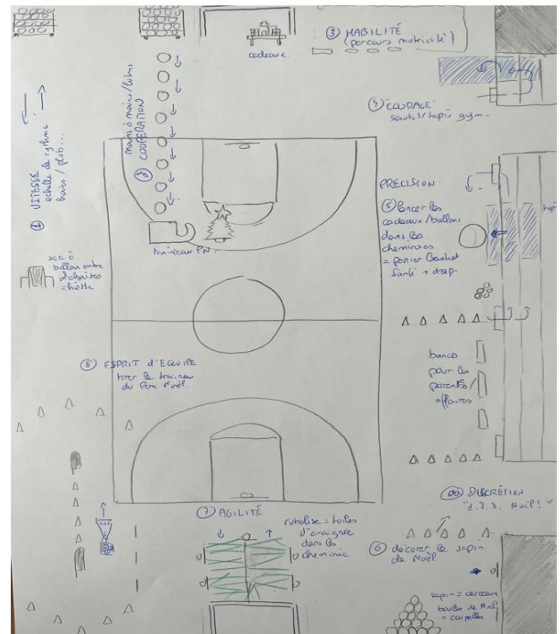 cadeaux
③ HABILITÉ
(parcours motricité)
④ COURAGE
sauts/tapis gym.
① VITESSE
échelle de rythme
② COOPÉRATION
mains à mains/lutins
traineau PN.
PRÉCISION
⑤ lancer les
cadeaux/ballons
dans les
cheminées
= panier basket
ballon entre
2 chaises
⑧ ESPRIT d'EQUIPE
tirer le traineau
du Père Noël
bancs
pour les
parents/
⑦ AGILITÉ
rubalise = toiles
d'araignée
dans les
cheminée
DISCRÉTION
"1.2.3. NOËL!"
⑥ décorer le sapin
de Noël
sapin = cerceaux
boules de Noël
= coupelles